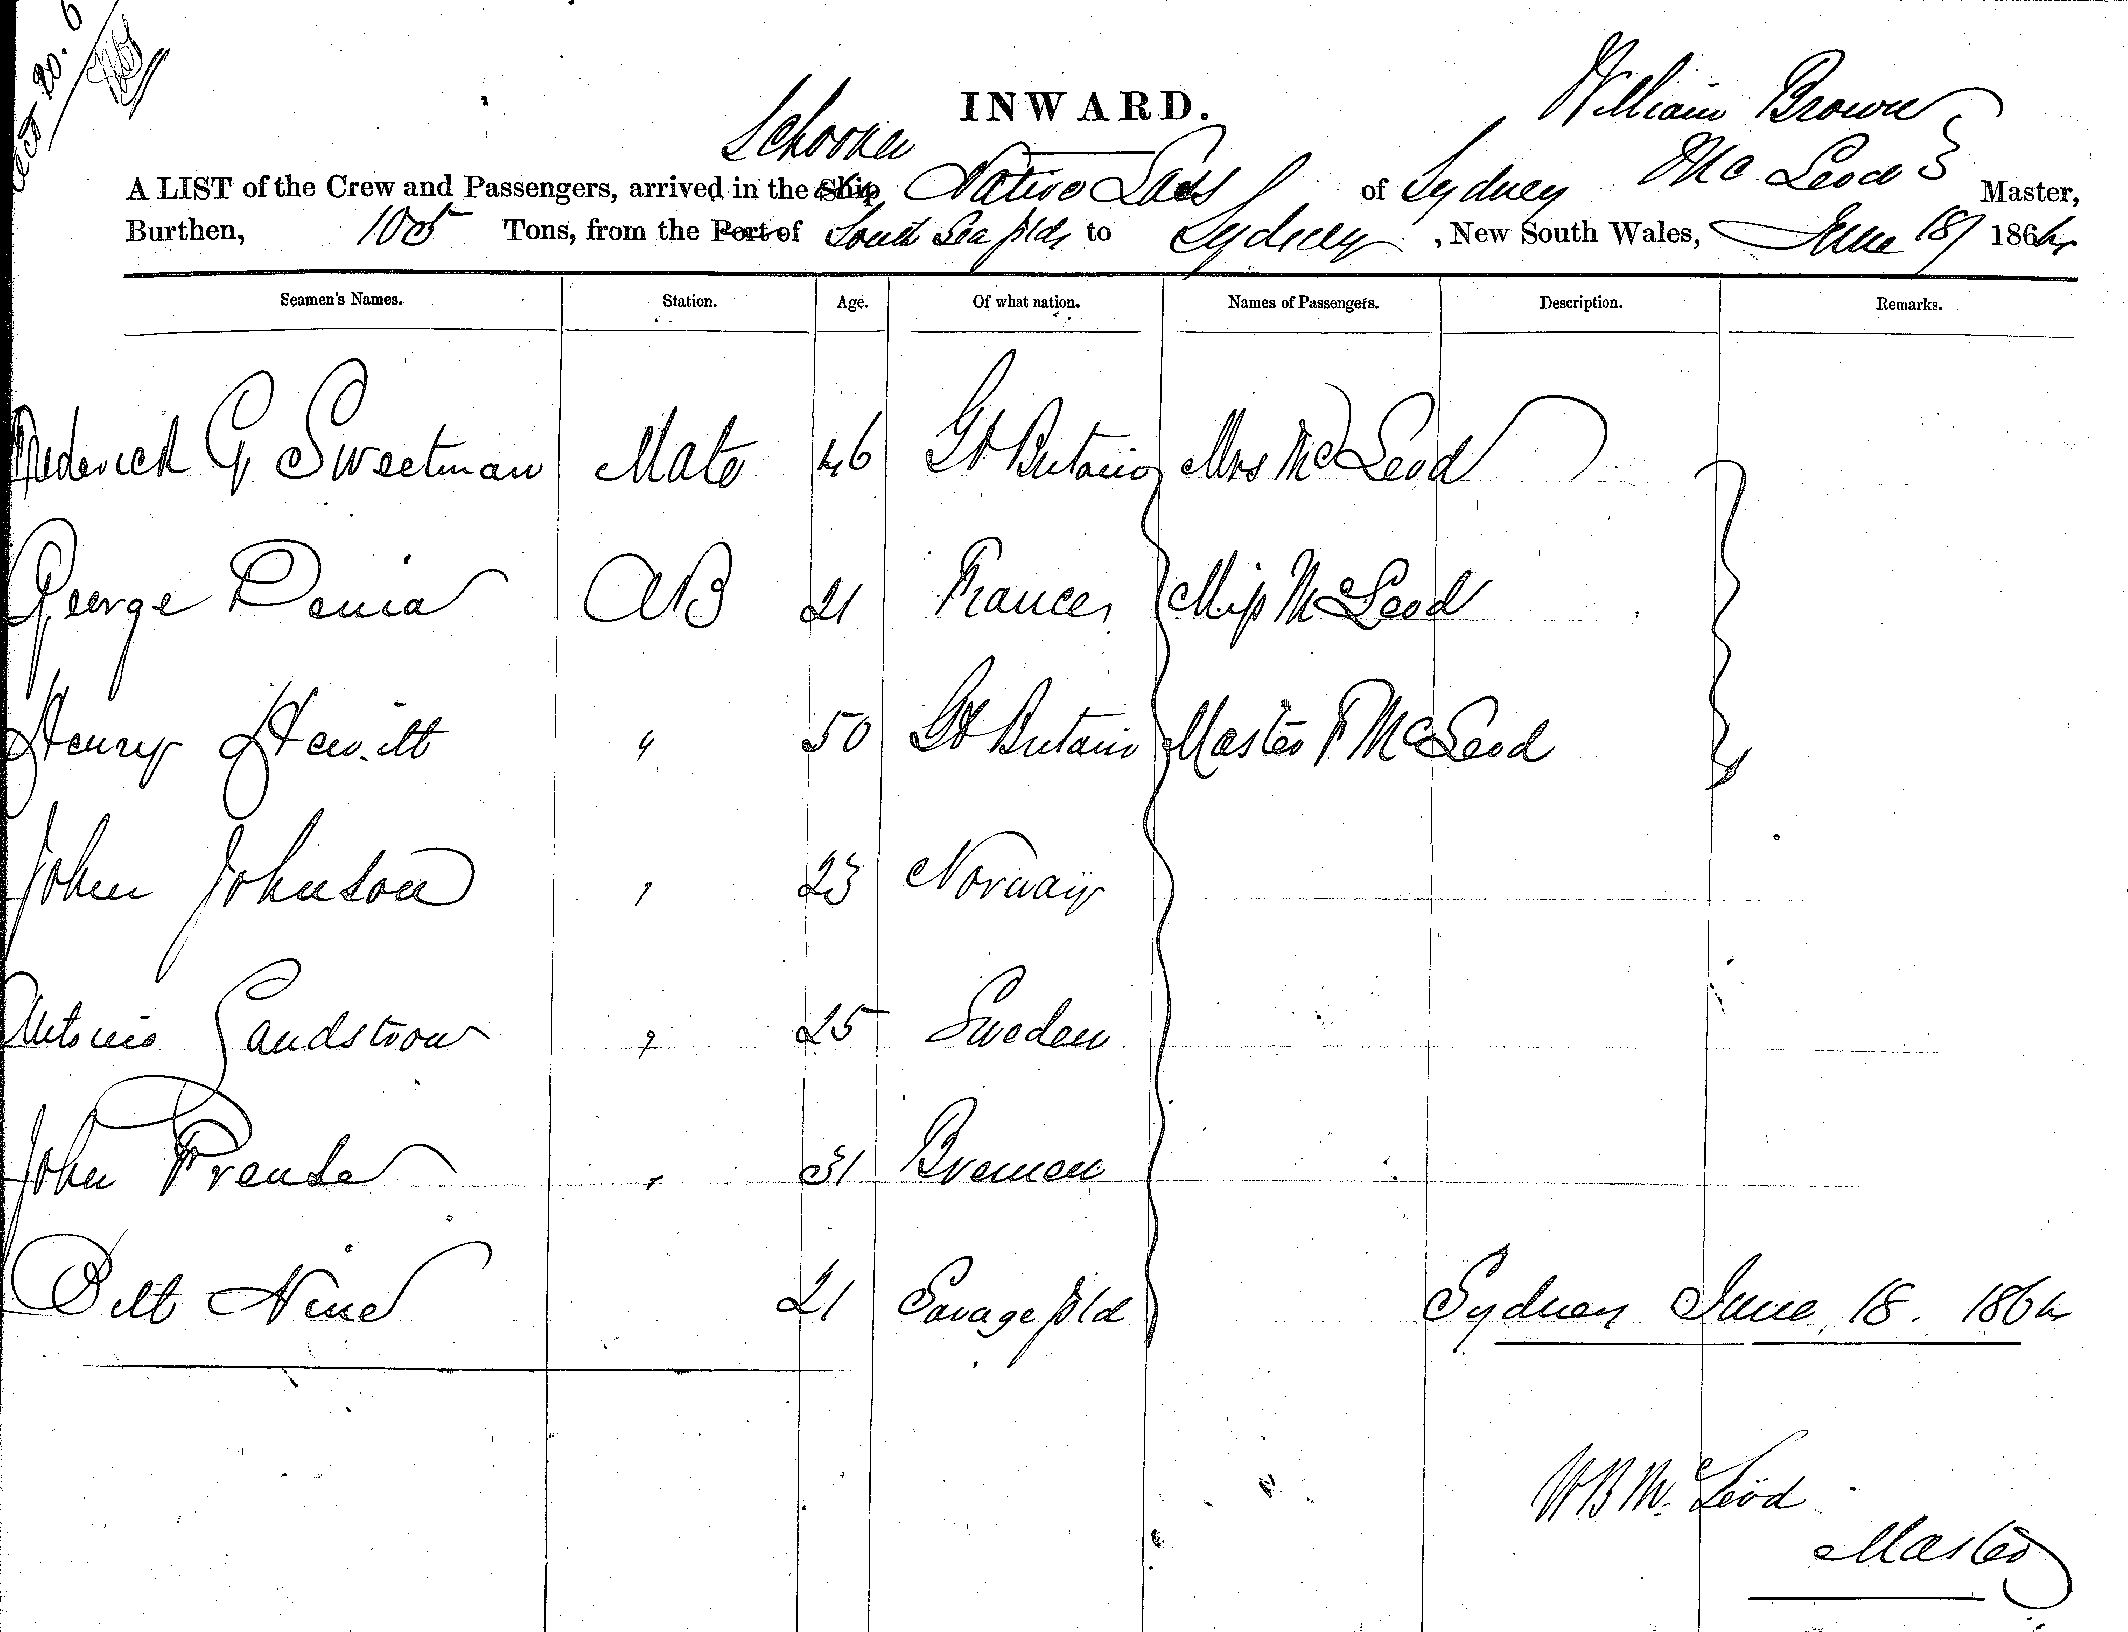 20. 6
INWARD.
William Brown
Schooner
A LIST of the Crew and Passengers, arrived in the Ship Native Lass of Sydney McLeod Master,
Burthen, 105 Tons, from the Port of South Sea Islds to Sydney, New South Wales, June 18 1864
Seamen's Names. Station. Age. Of what nation. Names of Passengers. Description. Remarks.
Frederick G Sweetman Mate 46 Gt Britain Mrs McLeod
George AB 21 France Miss McLeod
Henry Hewitt " 50 Gt Britain Master F McLeod
John Johnson " 23 Norway
Antonio Sandstrom " 25 Sweden
John " 31 Bremen
21 Savage Isld Sydney June 18. 1864
W B McLeod
Master